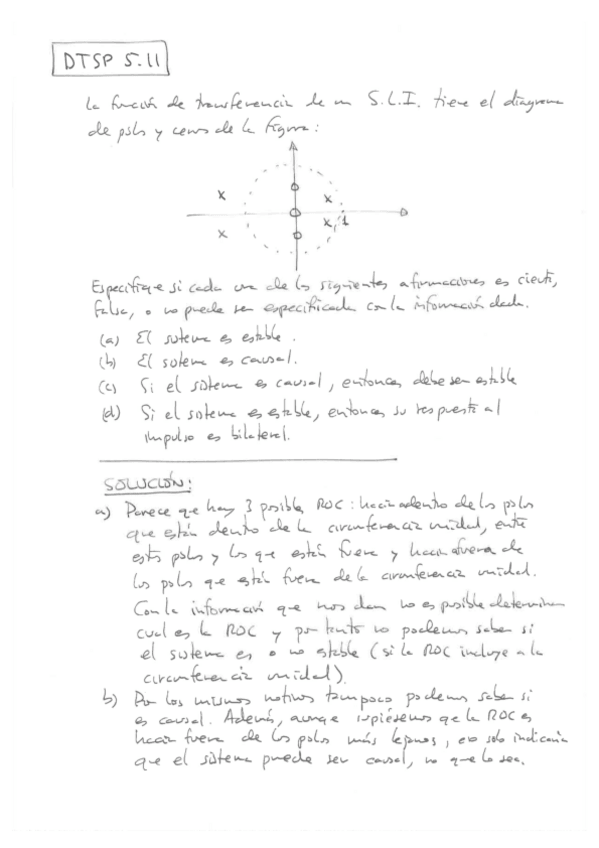 DTSP 5.11
La función de transferencia de un S.L.I. tiene el diagrama
de polos y ceros de la figura:
x
x
x
x
1
Especifique si cada una de las siguientes afirmaciones es cierta,
falsa, o no puede ser especificada con la información dada.
(a) El sistema es estable.
(b) El sistema es causal.
(c) Si el sistema es causal, entonces debe ser estable
(d) Si el sistema es estable, entonces su respuesta al
impulso es bilateral.
SOLUCIÓN:
a) Parece que hay 3 posibles ROC: hacia adentro de los polos
que están dentro de la circunferencia unidad, entre
estos polos y los que están fuera y hacia afuera de
los polos que están fuera de la circunferencia unidad.
Con la información que nos dan no es posible determinar
cual es la ROC y por tanto no podemos saber si
el sistema es o no estable (si la ROC incluye a la
circunferencia unidad).
b) Por los mismos motivos tampoco podemos saber si
es causal. Además, aunque supiésemos que la ROC es
hacia fuera de los polos más lejanos, eso solo indicaría
que el sistema puede ser causal, no que lo sea.